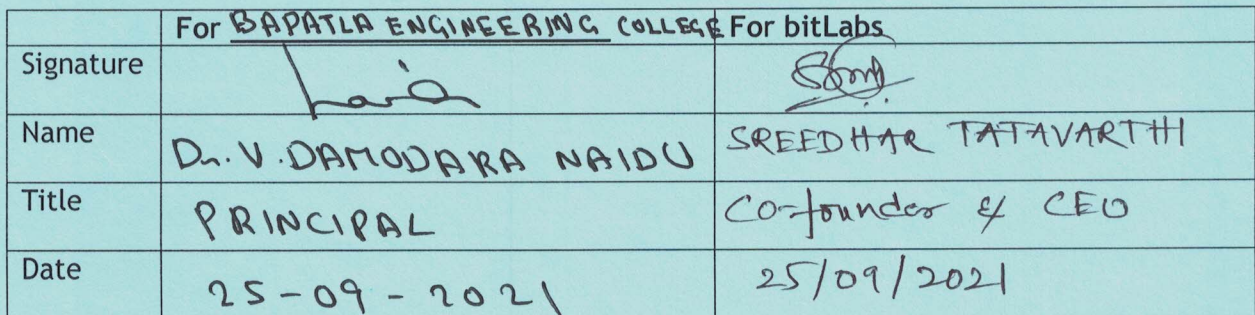 For BAPATLA ENGINEERING COLLEGE For bitLabs
Signature
Name Dr. V. DAMODARA NAIDU SREEDHAR TATAVARTHI
Title PRINCIPAL Co-founder & CEO
Date 25-09-2021 25/09/2021